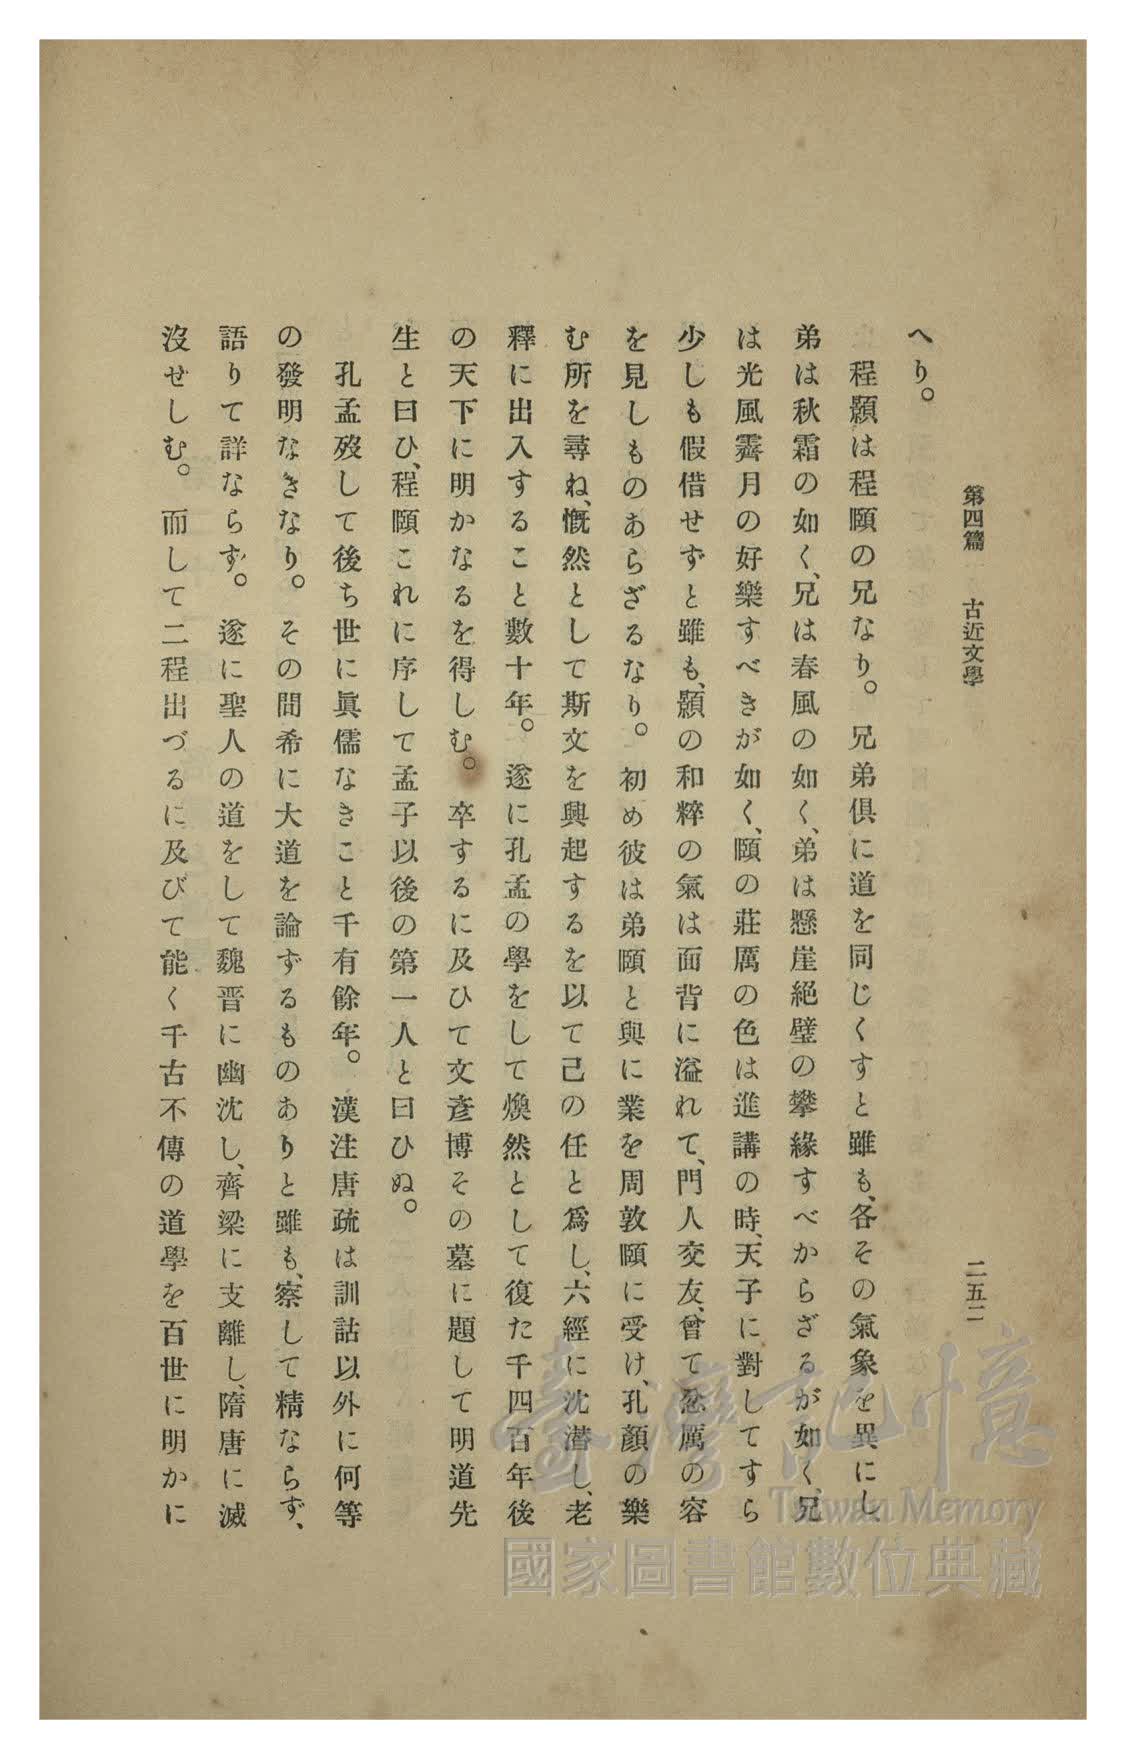 第四篇 古近文學
二五二
へり。
程顥は程頤の兄なり。兄弟俱に道を同じくすと雖も、各その氣象を異にし、
弟は秋霜の如く、兄は春風の如く、弟は懸崖絕壁の攀緣すべからざるが如く、兄
は光風霽月の好樂すべきが如く、頤の莊厲の色は進講の時、天子に對してすら
少しも假借せずと雖も、顥の和粹の氣は面背に溢れて、門人交友、曾て忿厲の容
を見しものあらざるなり。初め彼は弟頤と與に業を周敦頤に受け、孔顏の樂
む所を尋ね、慨然として斯文を興起するを以て己の任と爲し、六經に沈潛し、老
釋に出入すること數十年。遂に孔孟の學をして煥然として復た千四百年後
の天下に明かなるを得しむ。卒するに及ひて文彥博その墓に題して明道先
生と曰ひ、程頤これに序して孟子以後の第一人と曰ひぬ。
孔孟歿して後ち世に眞儒なきこと千有餘年。漢注唐疏は訓詁以外に何等
の發明なきなり。その間希に大道を論ずるものありと雖も、察して精ならず、
語りて詳ならず。遂に聖人の道をして魏晋に幽沈し、齊梁に支離し、隋唐に滅
沒せしむ。而して二程出づるに及びて能く千古不傳の道學を百世に明かに
臺灣記憶
Taiwan Memory
國家圖書館數位典藏